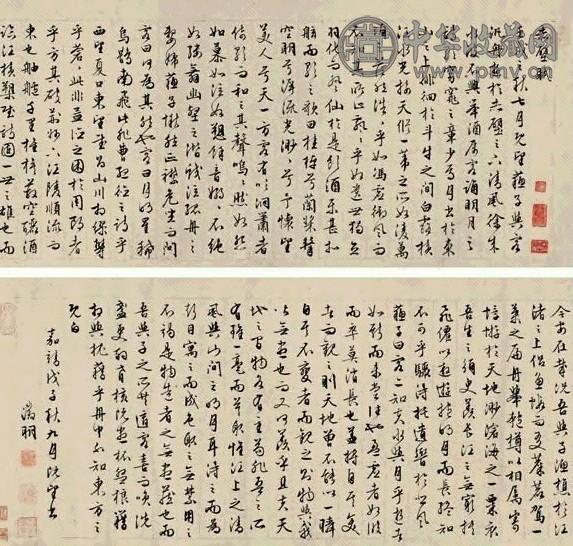 赤壁賦
壬戌之秋七月既望蘇子與客
泛舟遊於赤壁之下清風徐來
水波不興舉酒屬客誦明月之
詩歌窈窕之章少焉月出於東
山之上徘徊於斗牛之間白露橫
江水光接天縱一葦之所如凌萬
頃之茫然浩浩乎如馮虛御風而
不知其所止飄飄乎如遺世獨立
羽化而登仙於是飲酒樂甚扣
舷而歌之歌曰桂棹兮蘭槳擊
空明兮泝流光渺渺兮予懷望
美人兮天一方客有吹洞簫者
倚歌而和之其聲嗚嗚然如怨
如慕如泣如訴餘音嫋嫋不絕
如縷舞幽壑之潛蛟泣孤舟之
嫠婦蘇子愀然正襟危坐而問
客曰何為其然也客曰月明星稀
烏鵲南飛此非曹孟德之詩乎
西望夏口東望武昌山川相繆鬱
乎蒼蒼此非孟德之困於周郎者
乎方其破荊州下江陵順流而
東也舳艫千里旌旗蔽空釃酒
臨江橫槊賦詩固一世之雄也而
今安在哉況吾與子漁樵於江
渚之上侶魚蝦而友麋鹿駕一
葉之扁舟舉匏樽以相屬寄
蜉蝣於天地渺滄海之一粟哀
吾生之須臾羨長江之無窮挾
飛僊以遨遊抱明月而長終知
不可乎驟得托遺響於悲風
蘇子曰客亦知夫水與月乎逝者
如斯而未嘗往也盈虛者如彼
而卒莫消長也蓋將自其變
者而觀之則天地曾不能以一瞬
自其不變者而觀之則物與我
皆無盡也而又何羨乎且夫天
地之間物各有主苟非吾之所
有雖一毫而莫取惟江上之清
風與山間之明月耳得之而為
聲目寓之而成色取之無禁用之
不竭是造物者之無盡藏也而
吾與子之所共適客喜而笑洗
盞更酌肴核既盡杯盤狼藉
相與枕藉乎舟中不知東方之
既白
嘉靖戊子秋九月既望書
徵明
中华收藏网